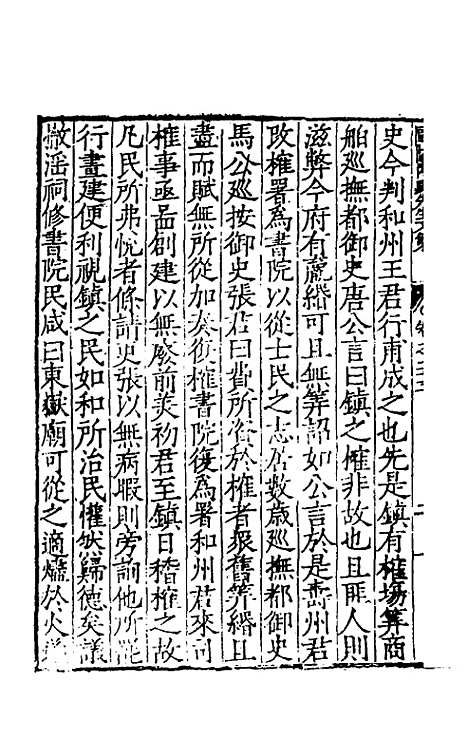 史今判和州王君行甫成之也先是鎮有榷場筭商
舶巡撫都御史唐公言曰鎮之榷非故也且匪人則
滋弊今府有羸緡可且無筭詔如公言於是壽州君
改榷署為書院以從士民之志居數歲巡撫都御史
馬公巡按御史張君曰費所資於榷者衆舊筭緡且
盡而賦無所從加奏復榷書院復為署和州君來司
榷事亟啚創建以無廢前美初君至鎮日稽榷之故
凡民所弗悅者條請史張以無病暇則旁詢他所
行畫建便利視鎮之民如和所治民懽然歸德矣議
撤淫祠修書院民咸曰東嶽廟可從之適燬於火